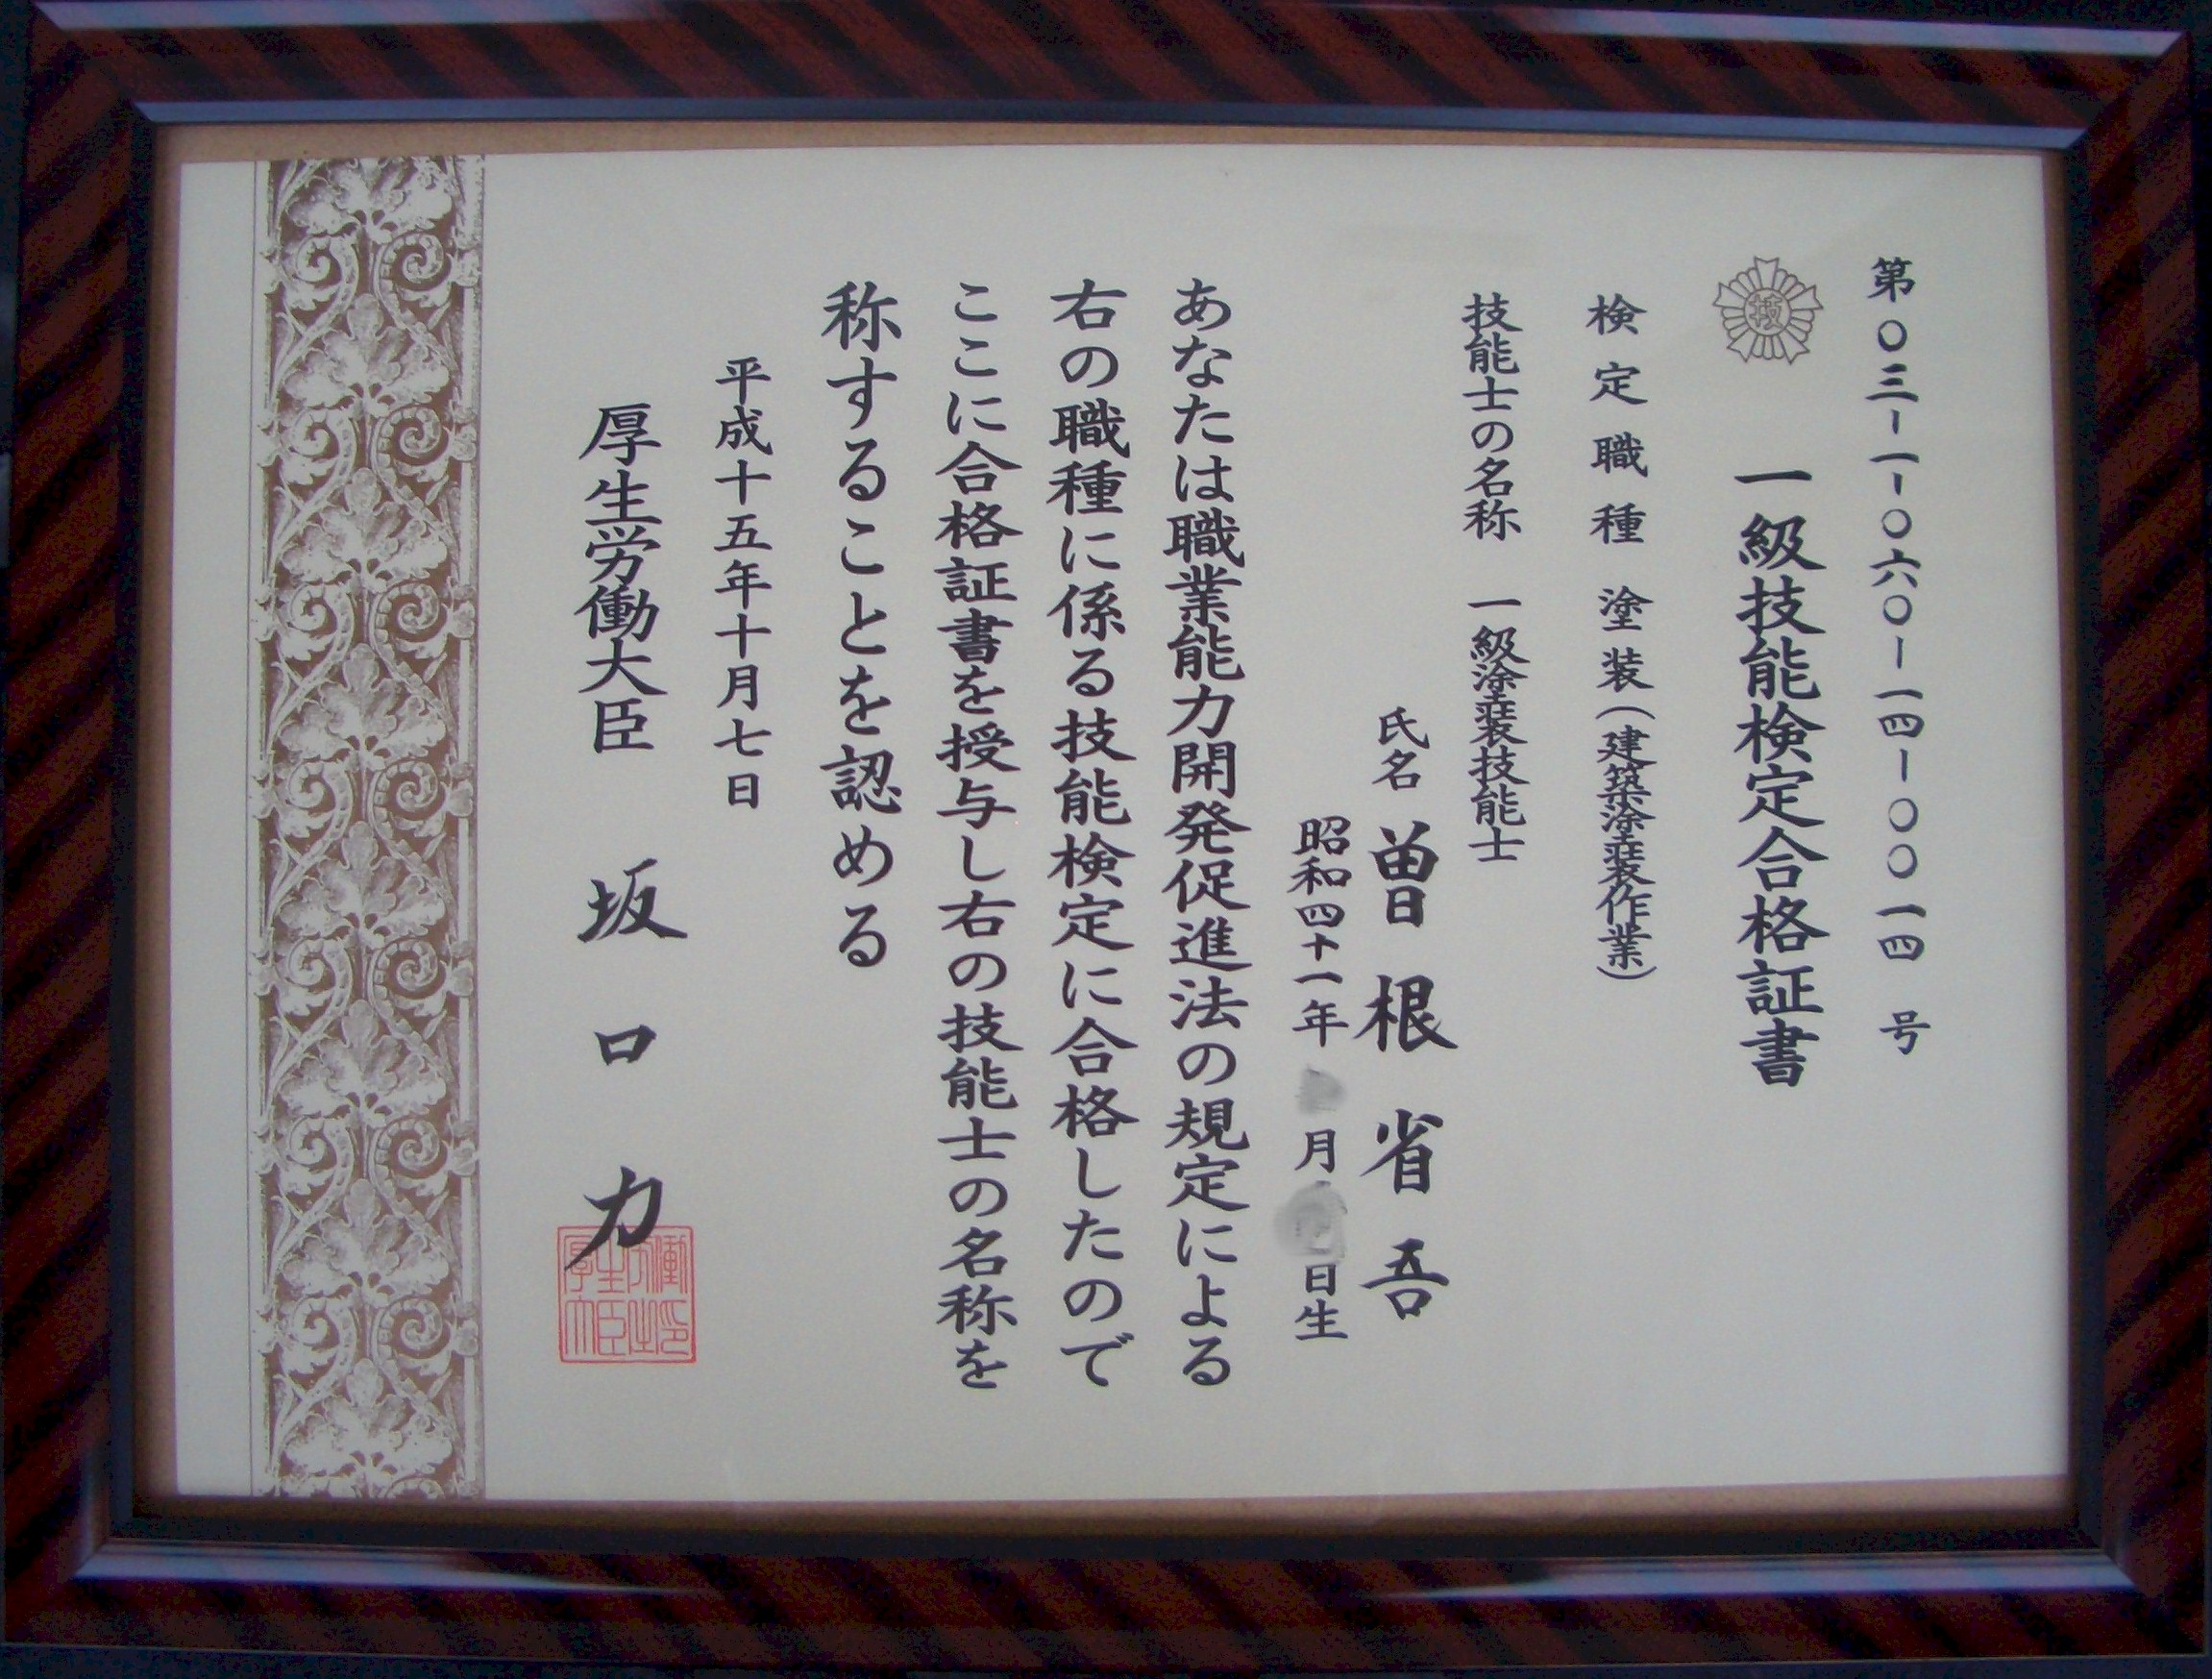 第〇三-一-〇六〇-一四-〇〇一四号
技
一級技能検定合格証書
検定職種 塗装(建築塗装作業)
技能士の名称 一級塗装技能士
氏名 曽根省吾
昭和四十一年 月 日生
あなたは職業能力開発促進法の規定による
右の職種に係る技能検定に合格したので
ここに合格証書を授与し右の技能士の名称を
称することを認める
平成十五年十月七日
厚生労働大臣 坂口力
厚生労働大臣之印